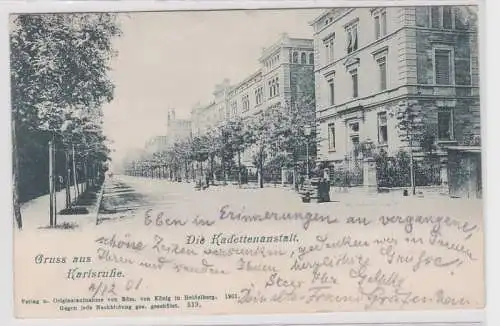 Die Kadettenanstalt.
Gruss aus
Karlsruhe.
Eben in Erinnerungen an vergangene,
schöne Zeiten versunken, gedenken wir in Treuen
Ihrer und senden Ihnen herzlichste Grüsse,
4/12 01.
Verlag u. Originalaufnahme von Edm. von König in Heidelberg. 1901.
Gegen jede Nachbildung ges. geschützt. 519.